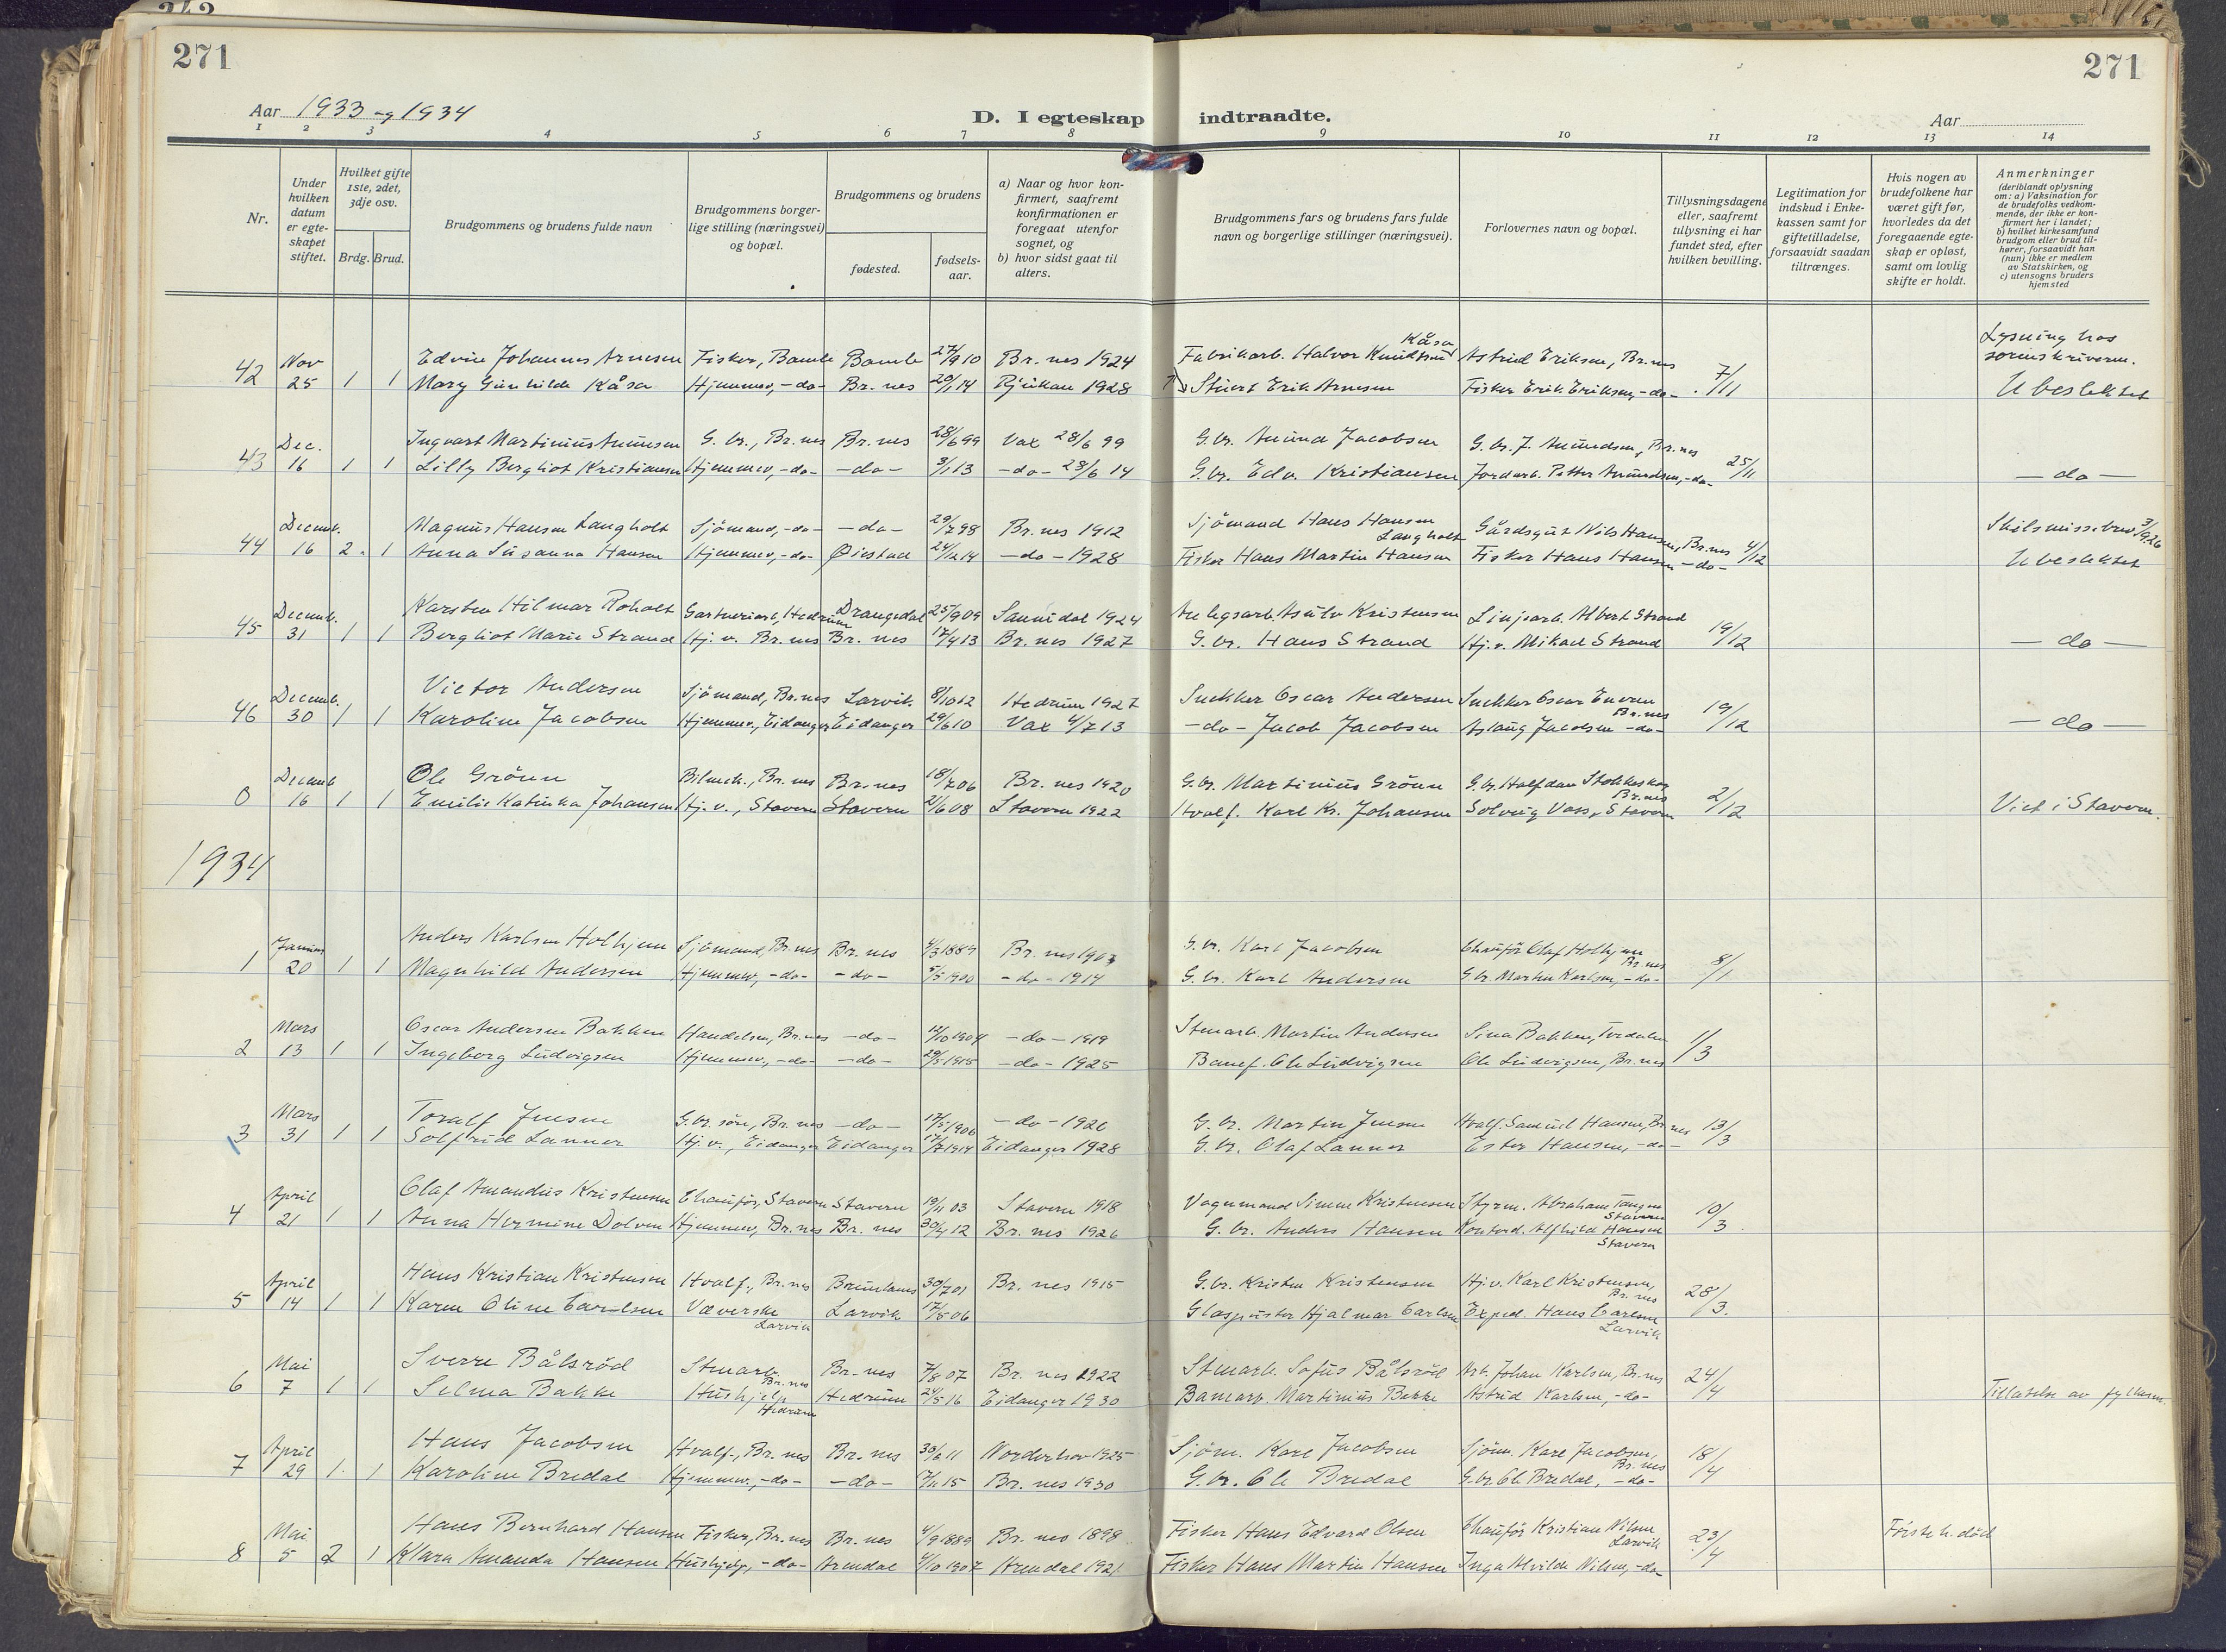 271
271
Aar 1933 og 1934
D. I egteskap indtraadte.
Aar
1 2 3 4 5 6 7 8 9 10 11 12 13 14
Nr.
Under hvilken datum er egteskapet stiftet.
Hvilket gifte 1ste, 2det, 3dje osv.
Brdg. Brud.
Brudgommens og brudens fulde navn
Brudgommens borgerlige stilling (næringsvei) og bopæl.
Brudgommens og brudens
fødested.
fødselsaar.
a) Naar og hvor konfirmert, saafremt konfirmationen er foregaat utenfor sognet, og
b) hvor sidst gaat til alters.
Brudgommens fars og brudens fars fulde navn og borgerlige stillinger (næringsvei).
Forlovernes navn og bopæl.
Tillysningsdagene eller, saafremt tillysning ei har fundet sted, efter hvilken bevilling.
Legitimation for indskud i Enkekassen samt for giftetilladelse, forsaavidt saadan tiltrænges.
Hvis nogen av brudefolkene har været gift før, hvorledes da det foregaaende egteskap er opløst, samt om lovlig skifte er holdt.
Anmerkninger
(deriblandt oplysning om: a) Vaksination for de brudefolks vedkommende, der ikke er konfirmert her i landet; b) hvilket kirkesamfund brudgom eller brud tilhører, forsaavidt han (hun) ikke er medlem av Statskirken, og c) utensogns bruders hjemsted
42 Nov Edvin Johannes Arnesen Fisker, Bamle Bamle 27/9 10 Br.nes 1924 Fabrikarb. Halvor Knudtsen Kåsa Astrid Eriksen, Br.nes 7/11 Lysning hos sorenskriveren.
25 1 1 Mary Gunhilde Kåsa Hjemmev, -do- Br.nes 20/1 14 Rjukan 1928 Stuert Erik Arnesen Fisker Erik Eriksen, -do- Ubeslektet
43 Dec. Ingvart Martinius Amundsen G.br., Br.nes Br.nes 28/6 99 Vax 28/6 99 G.br. Amund Jacobsen G.br. J. Amundsen, Br.nes 25/11
16 1 1 Lilly Bergliot Kristiansen Hjemmev, -do- -do- 3/1 13 -do- 28/6 14 G.br. Edv. Kristiansen Jordarb. Petter Amundsen, -do- -do-
44 Decemb. Magnus Hansen Langholt Sjömand, -do- -do- 29/7 98 Br.nes 1912 Sjömand Hans Hansen Langholt Gårdsgut Nils Hansen, Br.nes 4/12 Skilsmissebev 3/9 26
16 2. 1 Anna Susanna Hansen Hjemmev, -do- Øiestad 24/12 14 -do- 1928 Fisker Hans Martin Hansen Fisker Hans Hansen -do- Ubeslektet
45 Decemb. Karsten Hilmar Roholt Gartneriarb, Hedrum Drangedal 25/9 09 Sannidal 1924 Anlegsarb. Asulv Kristensen Linjearb. Albert Strand 19/12
31 1 1 Bergliot Marie Strand Hj.v. Br.nes Br.nes 17/4 13 Br.nes 1927 G.br. Hans Strand Hj.v. Mikael Strand -do-
46 Decemb. Victor Andersen Sjömand, Br.nes Larvik 8/10 12 Hedrum 1927 Snekker Oscar Andersen Snekker Oscar Enersen Br.nes 19/12
30 1 1 Karoline Jacobsen Hjemmev, Eidanger Eidanger 29/6 10 Vax 4/7 13 -do- Jacob Jacobsen Aslaug Jacobsen -do- -do-
0 Decemb Ole Grönn Bilmek., Br.nes Br.nes 18/7 06 Br.nes 1920 G.br. Martinius Grönn G.br. Halfdan Stokkeskar Br.nes 2/12
16 1 1 Emilie Katinka Johansen Hj.v., Stavern Stavern 21/6 08 Stavern 1922 Hvalf. Karl Kr. Johansen Solveig Vass, Stavern Viet i Stavern.
1934
1 Januar Anders Karlsen Holhjem Sjömand, Br.nes Br.nes 4/3 1889 Br.nes 1903 G.br. Karl Jacobsen Chauför Olaf Holhjem Br.nes 8/1
20 1 1 Magnhild Andersen Hjemmev, -do- -do- 5/5 1900 -do- 1914 G.br. Karl Andersen G.br. Martin Karlsen, -do-
2 Mars Oscar Andersen Bakken Handelsm, Br.nes -do- 14/10 1904 -do- 1919 Stenarb. Martin Andersen Sina Bakken, Tvedalen 1/3
13 1 1 Ingeborg Ludvigsen Hjemmev., -do- -do- 29/5 1915 -do- 1925 Banef. Ole Ludvigsen Ole Ludvigsen, Br.nes
3 Mars Toralf Jensen G.br. sön, Br.nes -do- 17/5 1906 -do- 1926 G.br. Martin Jensen Hvalf. Samuel Hansen, Br.nes 13/3
31 1 1 Solfrid Lanner Hj.v., Eidanger Eidanger 17/7 1914 Eidanger 1928 G.br. Olaf Lanner Ester Hansen, -do-
4 April Olaf Amandus Kristensen Chauför, Stavern Stavern 19/11 03 Stavern 1918 Vognmand Simen Kristensen Styrm. Abraham Tangen Stavern 10/3
21 1 1 Anna Hermine Dolven Hjemmev, Br.nes Br.nes 30/4 12 Br.nes 1926 G.br. Anders Hansen Kontord. Alfhild Hansen Stavern
5 April Hans Kristian Kristensen Hvalf., Br.nes Brunlanes 30/7 01 Br.nes 1915 G.br. Kristen Kristensen Hj.v. Karl Kristensen, Br.nes 28/3.
14 1 1 Karen Oline Carlsen Væverske Larvik Larvik 17/5 06 Glaspuster Hjalmar Carlsen Exped. Hans Carlsen Larvik
6 Mai Sverre Bålsröd Stenarb. Br.nes Br.nes 7/8 07 Br.nes 1922 Stenarb. Sofus Bålsröd Arb. Johan Karlsen, Br.nes 24/4
7 1 1 Selma Bakke Hushjelp Hedrum Hedrum 24/5 16 Eidanger 1930 Banearb. Martinius Bakke Astrid Karlsen, -do- Tillatelse av fylkesm.
7 April Hans Jacobsen Hvalf., Br.nes Br.nes 30/6 11 Norderhov 1925 Sjöm. Karl Jacobsen Sjöm. Kare Jacobsen, Br.nes 18/4
29 1. 1 Karoline Bredal Hjemmev, -do- -do- 17/11 15 Br.nes 1930 G.br. Ole Bredal G.br. Ole Bredal, -do-
8 Mai Hans Bernhard Hansen Fisker, Br.nes Br.nes 4/9 1889 Br.nes 1898 Fisker Hans Edvard Olsen Chauför Kristian Nilsen Larvik 23/4 Første h. död
5 2 1 Klara Amanda Hansen Hushjelp, -do- Arendal 4/10 1907 Arendal 1921 Fisker Hans Martin Hansen Inga Alvilde Nilsen, -do-